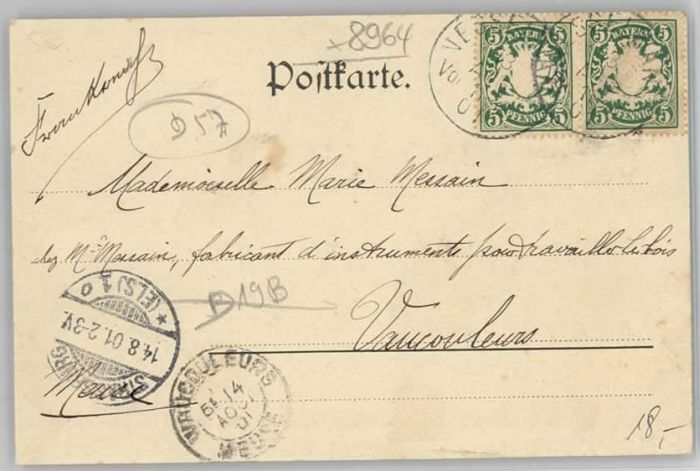 ×8964
Postkarte.
BAYERN
5 5
PFENNIG
BAYERN
5 5
PFENNIG
D57
Mademoiselle Marie Messain
chez Mr Messain, fabricant d'instruments pour travailler le bois
D19B
Vaucouleurs
Meuse
(ELS) 1 o
14.8.01.2-3V.
STRASSBURG
VAUCOULEURS
14
AOUT
01
MEUSE
18,-